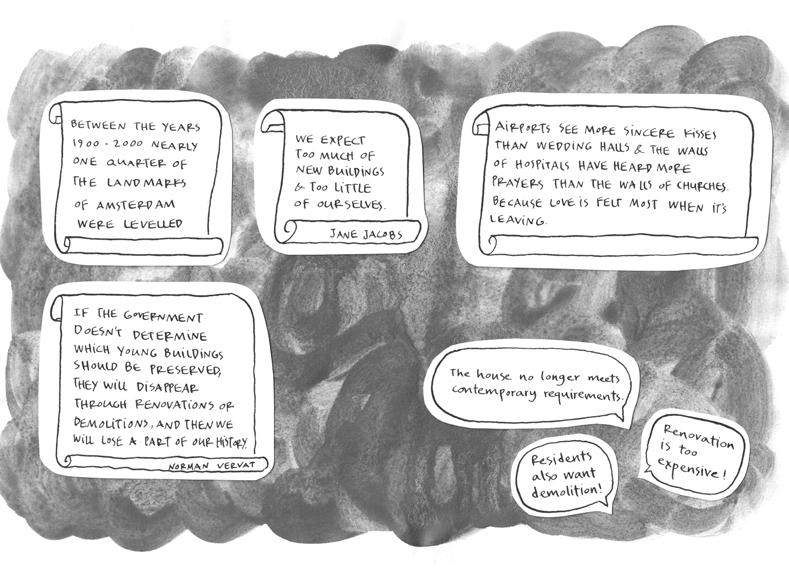 BETWEEN THE YEARS
1900 - 2000 NEARLY
ONE QUARTER OF
THE LANDMARKS
OF AMSTERDAM
WERE LEVELLED
WE EXPECT
TOO MUCH OF
NEW BUILDINGS
& TOO LITTLE
OF OURSELVES.
JANE JACOBS
AIRPORTS SEE MORE SINCERE KISSES
THAN WEDDING HALLS & THE WALLS
OF HOSPITALS HAVE HEARD MORE
PRAYERS THAN THE WALLS OF CHURCHES.
BECAUSE LOVE IS FELT MOST WHEN IT'S
LEAVING.
IF THE GOVERNMENT
DOESN'T DETERMINE
WHICH YOUNG BUILDINGS
SHOULD BE PRESERVED,
THEY WILL DISAPPEAR
THROUGH RENOVATIONS OR
DEMOLITIONS, AND THEN WE
WILL LOSE A PART OF OUR HISTORY.
NORMAN VERVAT
The house no longer meets
contemporary requirements.
Residents
also want
demolition!
Renovation
is too
expensive!